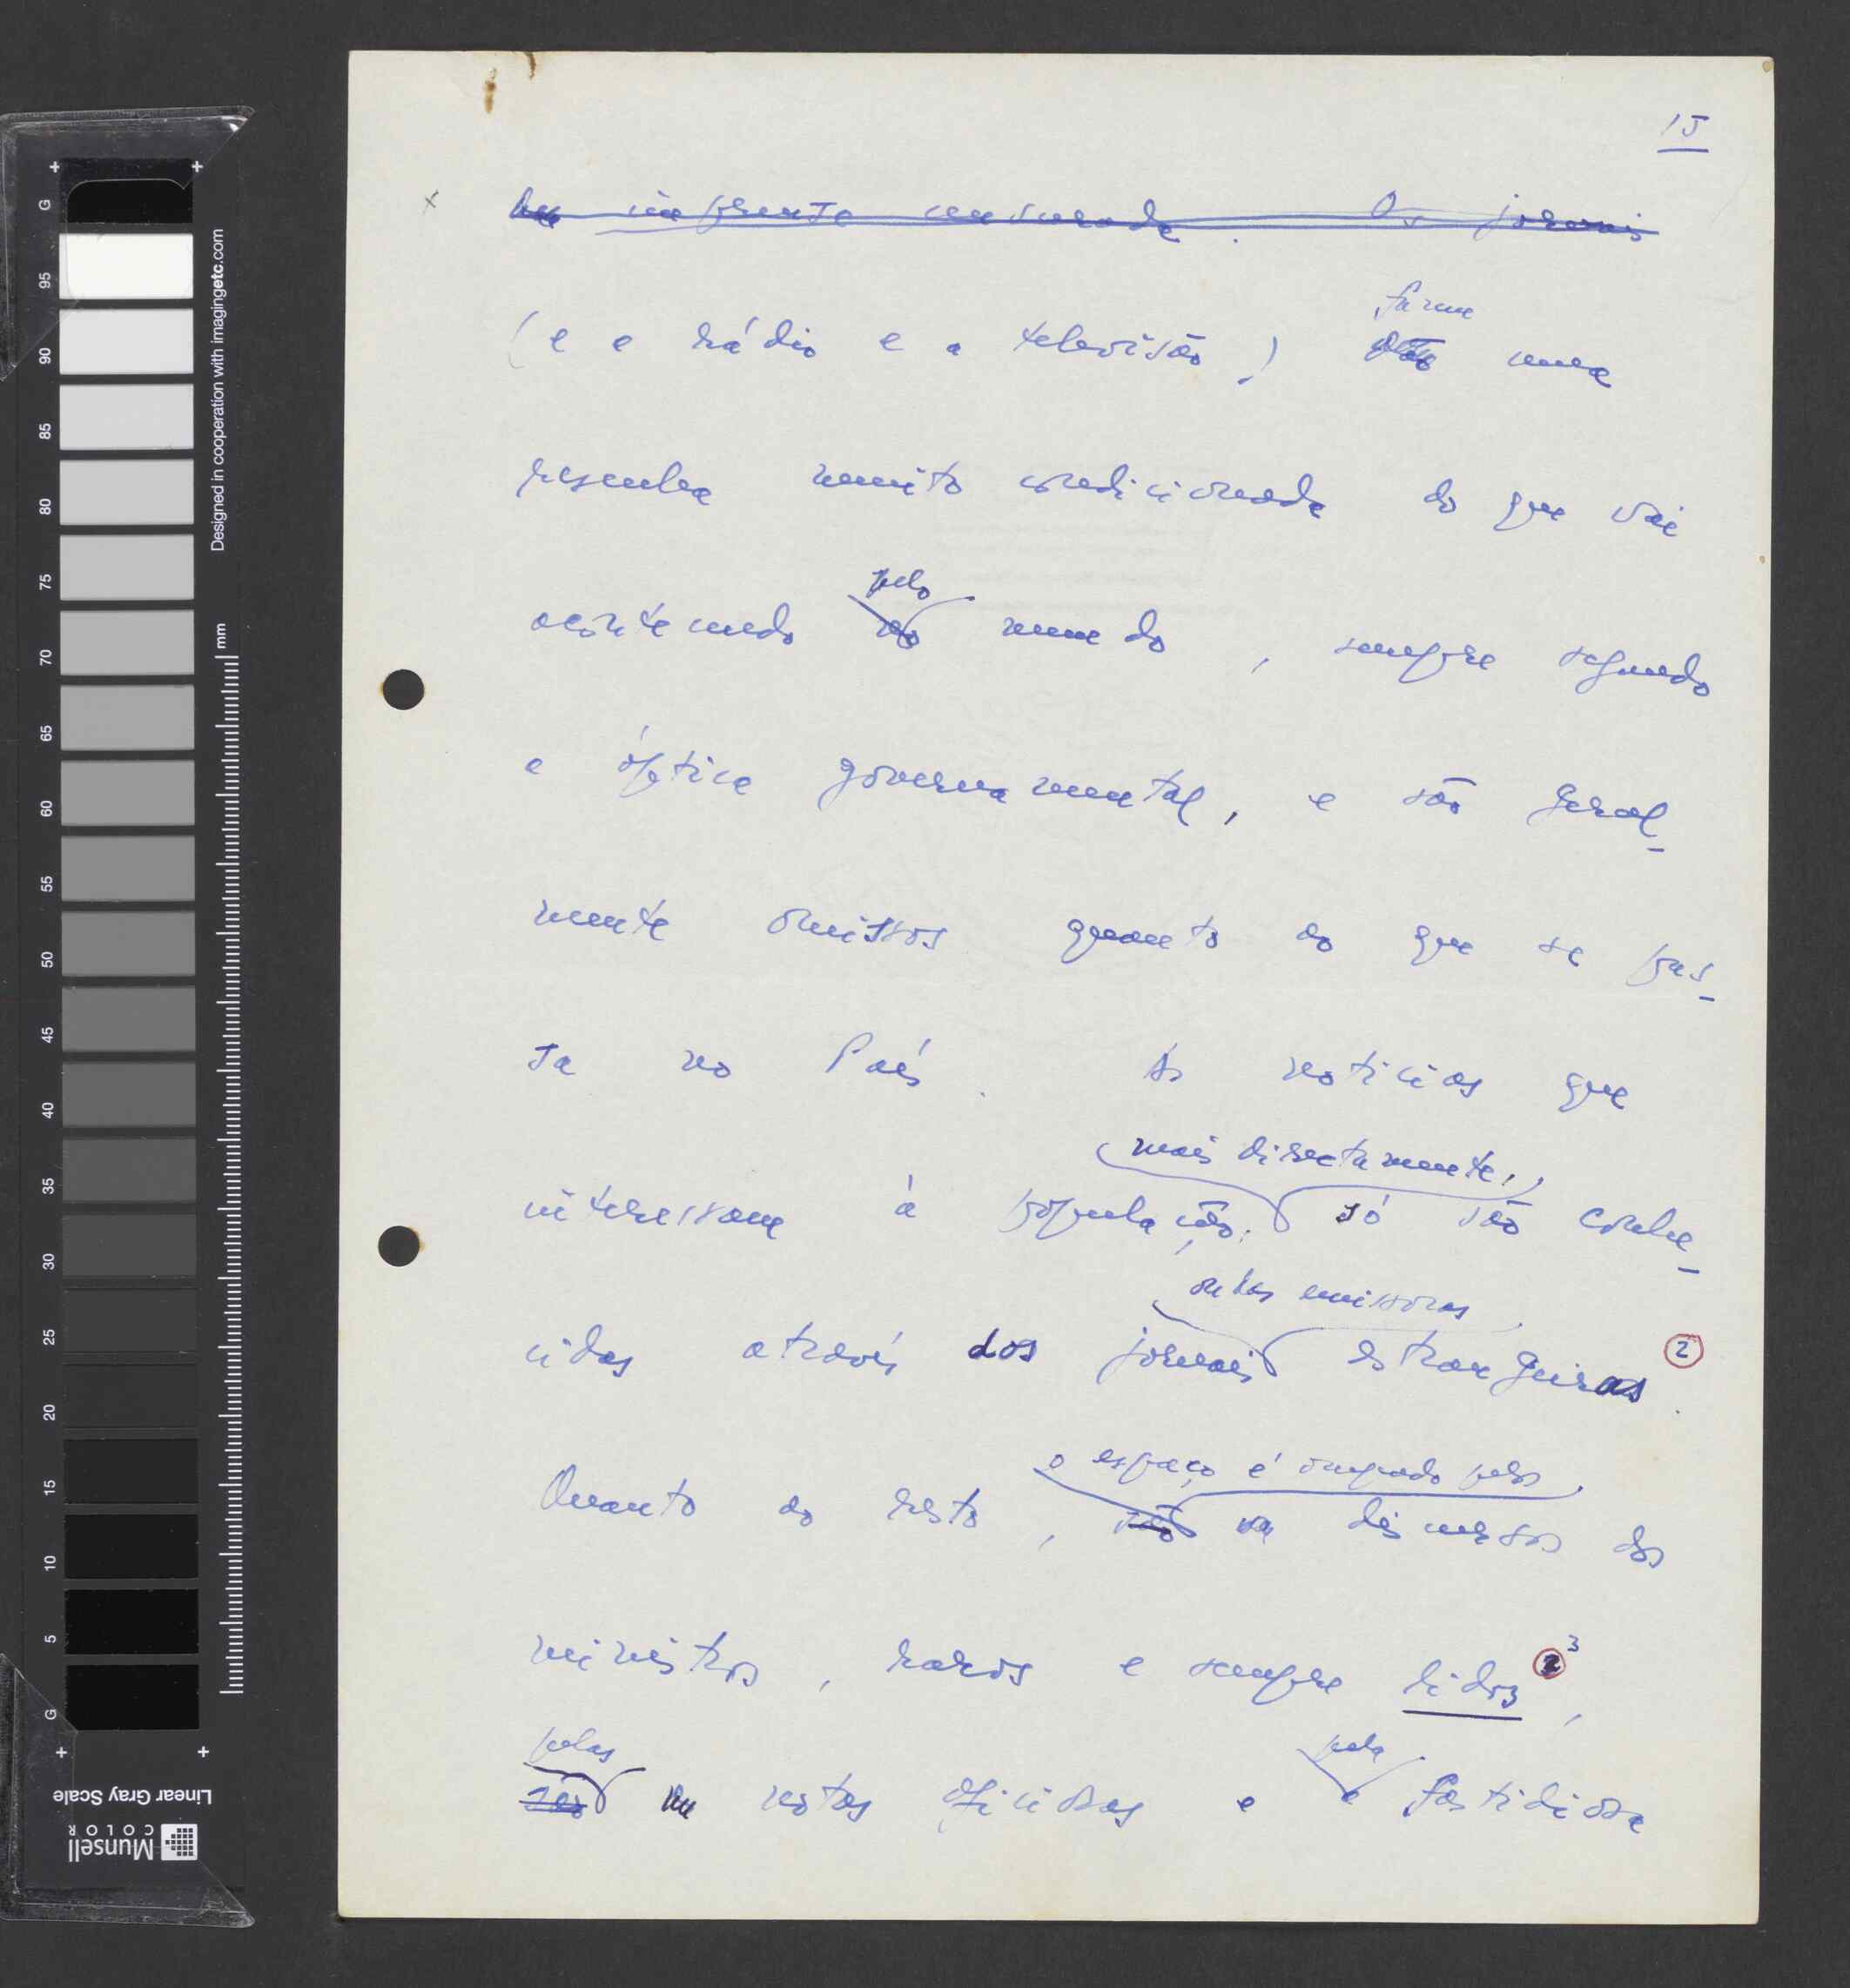 15
x
imprensa censurada. Os jornais
fazem
(e a rádio e a televisão) uma
resenha muito condicionada do que vai
pelo
acontecendo no mundo, sempre segundo
a óptica governamental, e são geral-
mente omissos quanto ao que se pas-
sa no País. As notícias que
mais directamente,
interessam à população, só são conhe-
ou das emissoras
cidas através dos jornais estrangeiras. 2
o espaço é ocupado pelos
Quanto ao resto, são os discursos dos
ministros, raros e sempre lidos 3,
pelas
são as notas oficiosas e a fastidiosa
pela
G 95 90 85 80 75 70 65 60 55 50 45 40 35 30 25 20 15 10 5 G
mm
Designed in cooperation with imagingetc.com
Munsell
COLOR
Linear Gray Scale